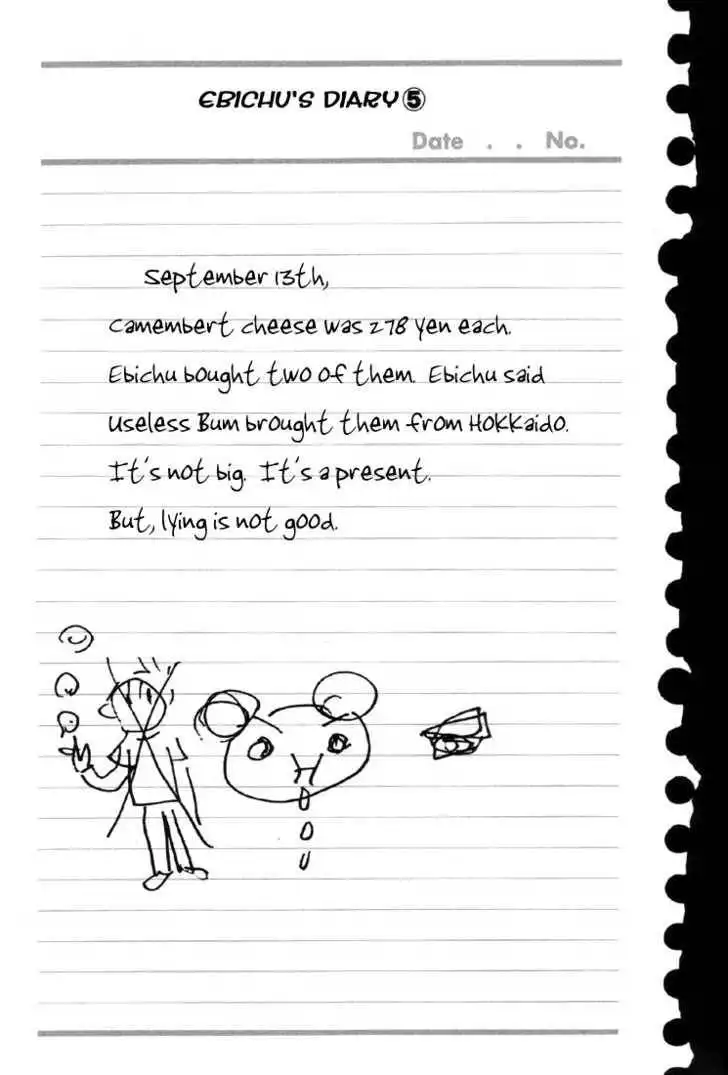 EBICHU'S DIARY ⑤
Date . . No.
September 13th,
Camembert cheese was 278 yen each.
Ebichu bought two of them. Ebichu said
Useless Bum brought them from Hokkaido.
It's not big. It's a present.
But, lying is not good.